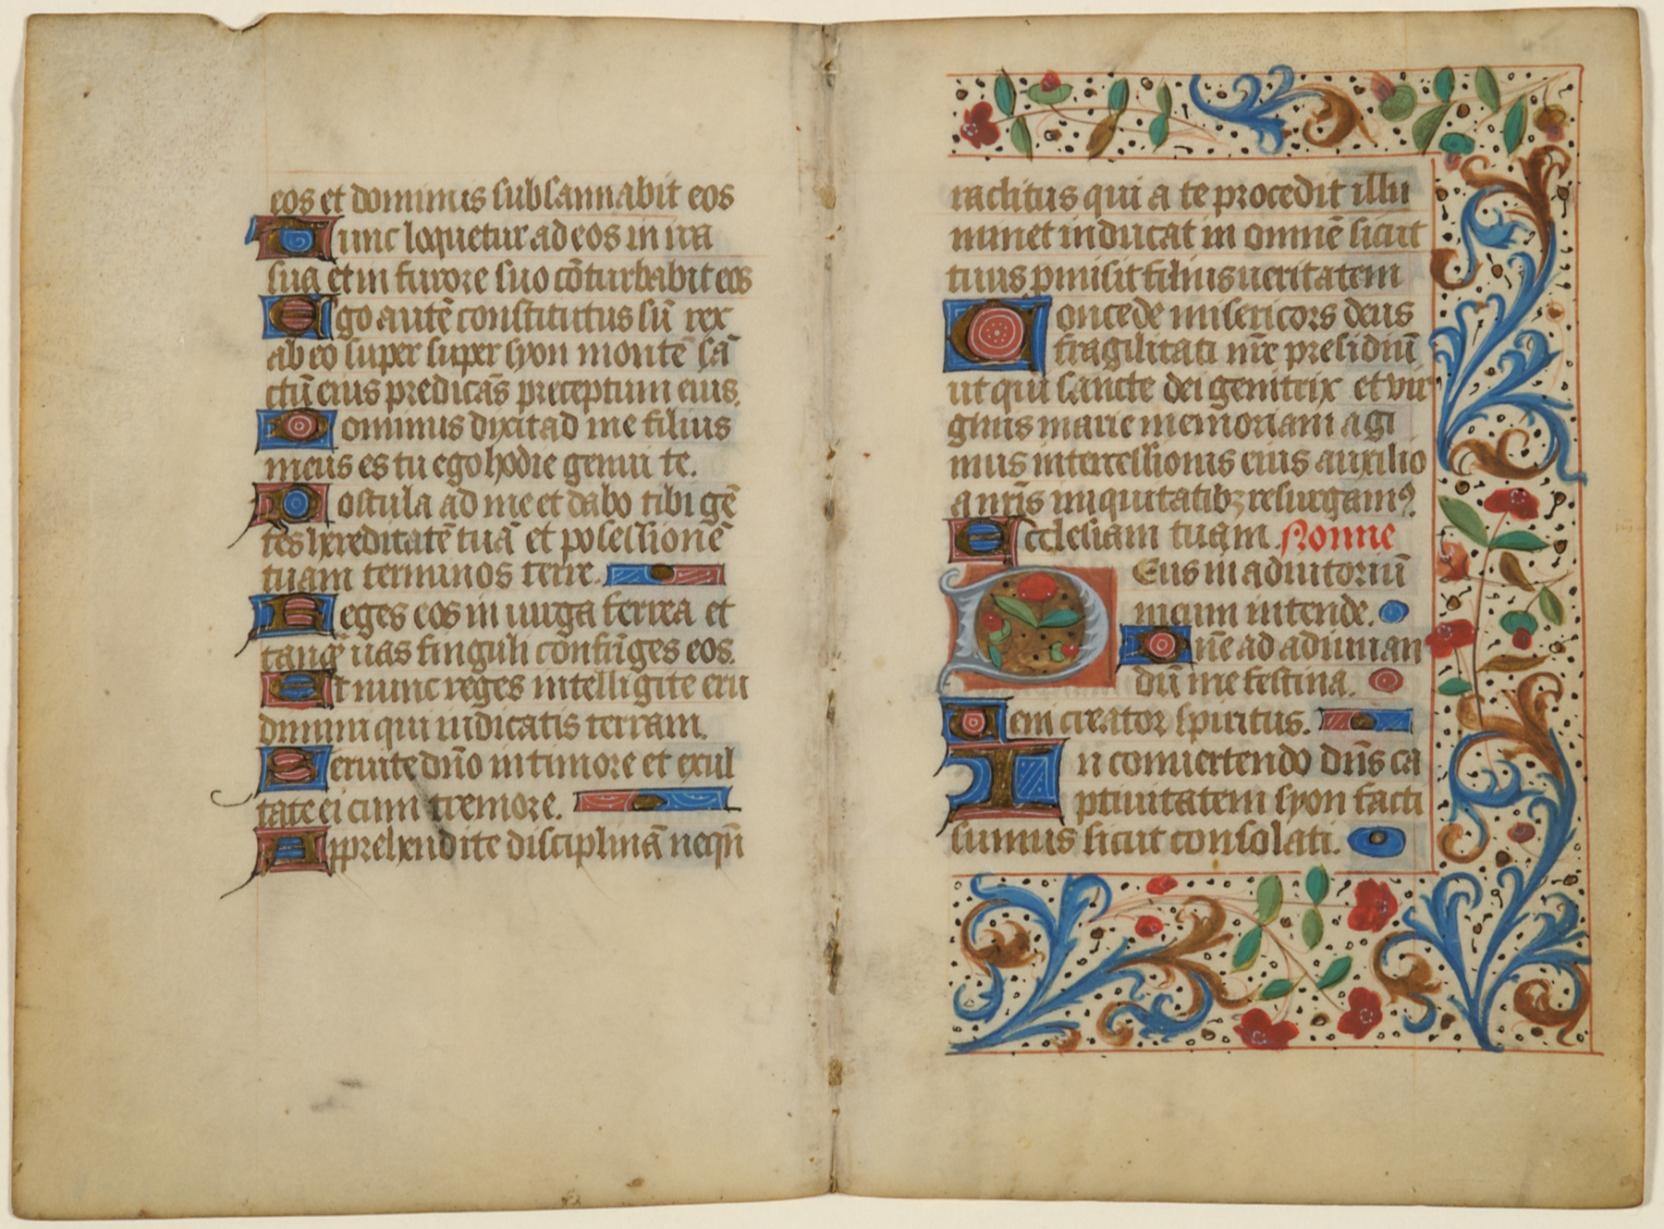 eos et dominus subsannabit eos
Nunc loquetur ad eos in ira
sua et in furore suo cōturbabit eos
Ego autē constitutus sū rex
ab eo super super syon montē sā
ctū eius predicās preceptum eius.
Dominus dixit ad me filius
meus es tu ego hodie genui te.
Postula ad me et dabo tibi gē
tes hereditatē tuā et posessionē
tuam terminos terre.
Reges eos in uirga ferrea et
tanq̄ uas finguli confr̄iges eos.
Et nunc reges intelligite eru
dimini qui iudicatis terram.
Seruite dn̄o in timore et exul
tate ei cum tremore.
Apprehendite disciplinā neqn̄
raclitus qui a te procedit illu
minet inducat in omnē sicut
tuus pmisit filius ueritatem
Concede misericors deus
fragilitati nr̄e presidiū
ut qui sancte dei genitrix et vir
ginis marie memoriam agi
mus intercessionis eius auxilio
a nr̄is iniquitatibꝫ resurgamꝰ.
Ecclesiam tuam. Nonne
DEus in adiutoriū
meum intende.
Dn̄e ad adiuuan
dū me festina.
Veni creator spiritus.
In conuertendo dn̄s ca
ptiuitatem syon facti
sumus sicut consolati.